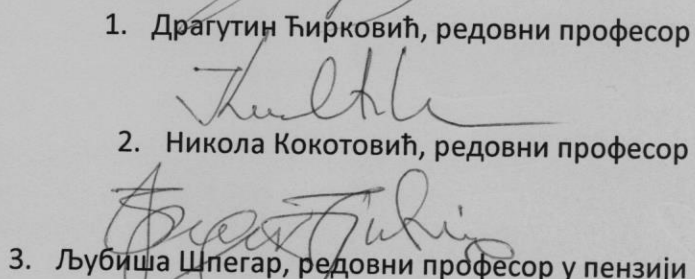 1. Драгутин Ћирковић, редовни професор
2. Никола Кокотовић, редовни професор
3. Љубиша Шпегар, редовни професор у пензији